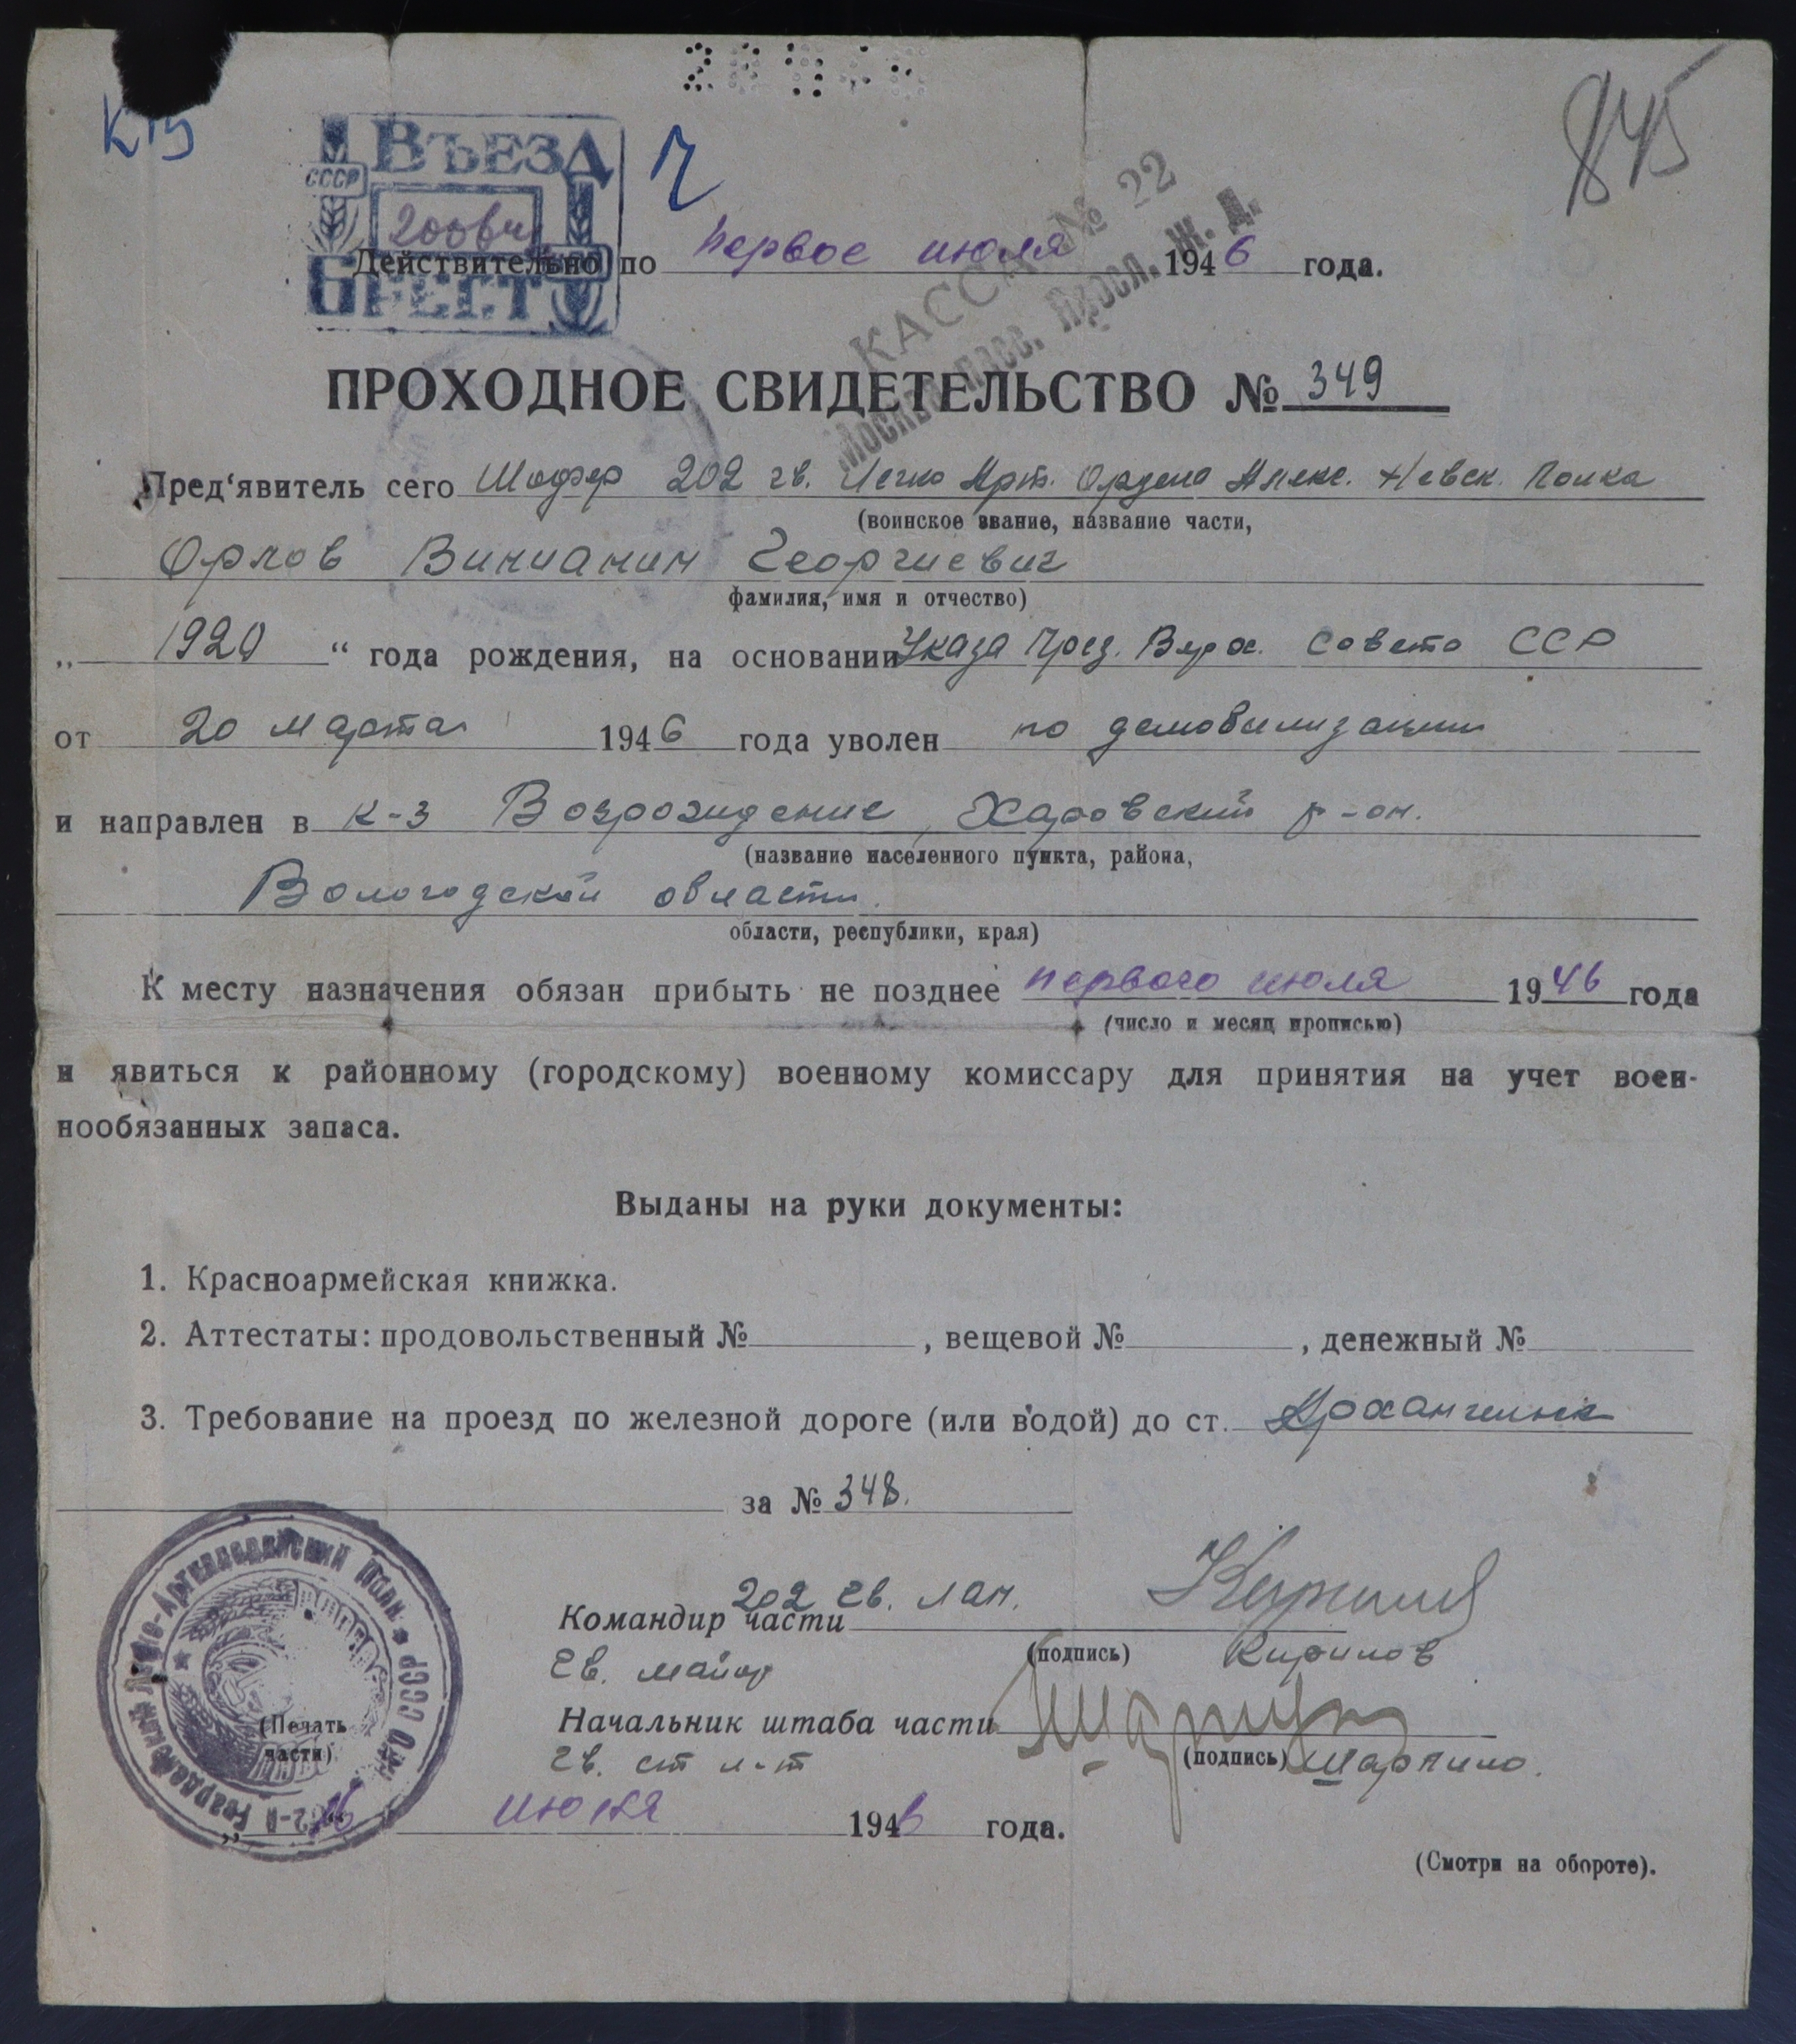 К
845
ВЪЕЗД
СССР
БРЕСТ
Ч
КАССА № 22
Москва пасс. Яросл. Ж. Д.
Действительно по первое июля 1946 года.
ПРОХОДНОЕ СВИДЕТЕЛЬСТВО № 349
Пред'явитель сего Шофер 202 гв. Легко Арт. Ордена Алекс. Невск. Полка
(воинское звание, название части,
Орлов Винианин Георгиевич
фамилия, имя и отчество)
„ 1920 “ года рождения, на основании Указа През. Верх. Совета ССР
от 20 марта 1946 года уволен по демобилизации
и направлен в к-з Возрождение, Харовский р-он.
(название населенного пункта, района,
Вологодской области.
области, республики, края)
К месту назначения обязан прибыть не позднее первого июля 1946 года
(число и месяц прописью)
и явиться к районному (городскому) военному комиссару для принятия на учет воен-
нообязанных запаса.
Выданы на руки документы:
1. Красноармейская книжка.
2. Аттестаты: продовольственный № , вещевой № , денежный №
3. Требование на проезд по железной дороге (или водой) до ст. Архангельск
за № 348.
202 гв. лап.
Командир части
(подпись) Кирилов
гв. майор
Начальник штаба части
(подпись) Шарпило.
гв. ст л-т
(Печать
части)
„ 16 июня 1946 года.
(Смотри на обороте).